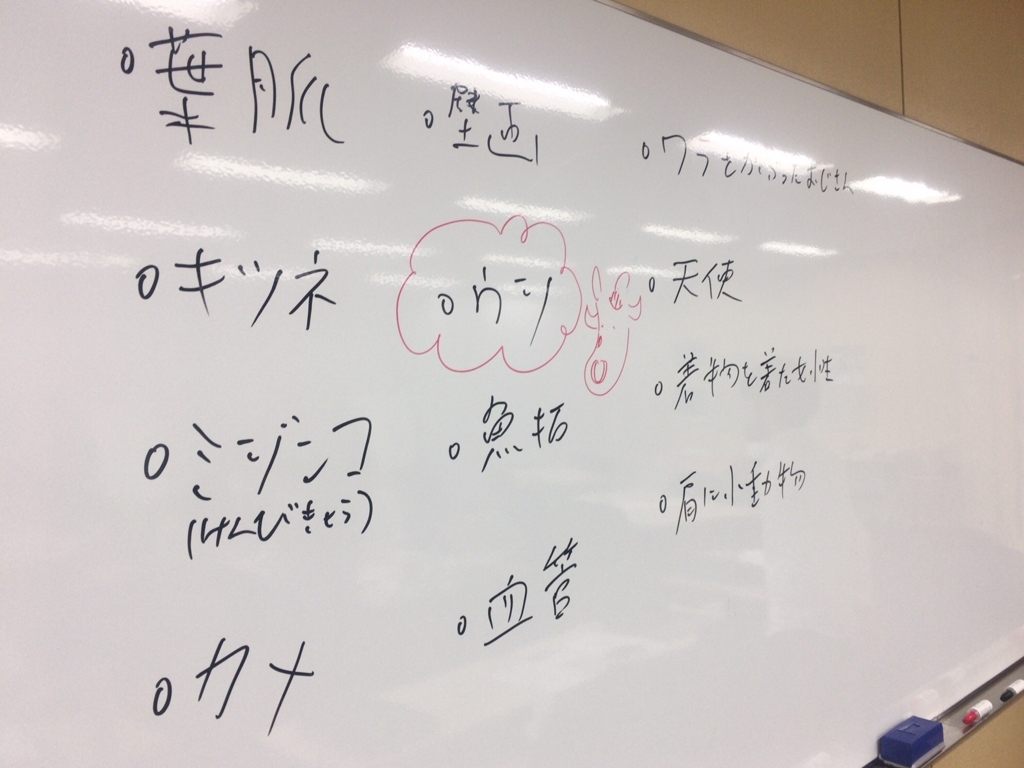 ○葉脈
○キツネ
○ミジンコ
(けんびきょう)
○カメ
○壁画
○ウシ
○魚拓
○血管
○ワラをかぶったおじさん
○天使
○着物を着た女性
○肩に小動物